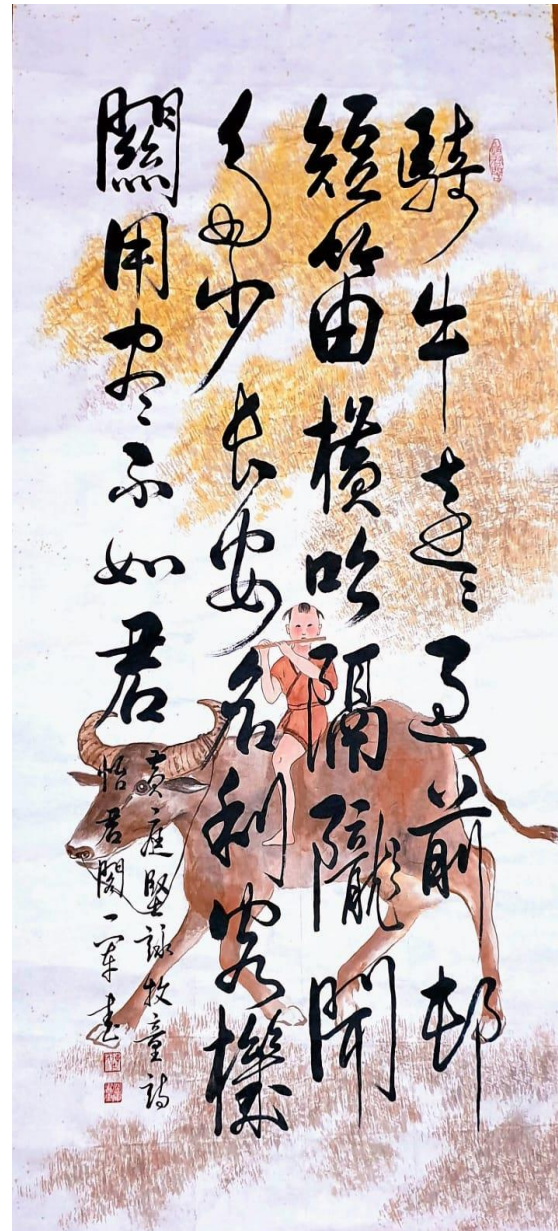 騎牛遠〻過前邨
短笛橫吹隔隴聞
多少長安名利客機
關用盡不如君
黃庭堅詠牧童詩
怡君閣一軍書